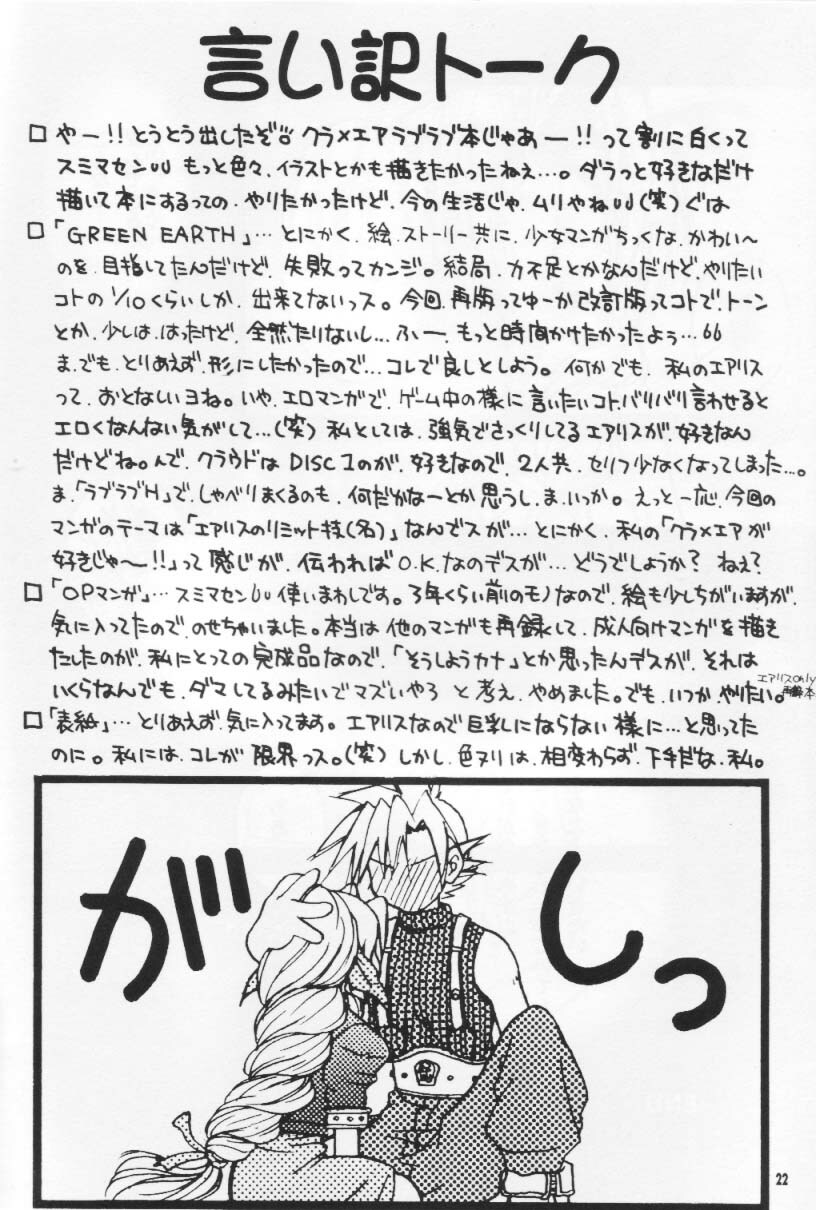 言い訳トーク
□ やー!!とうとう出したぞ クラ×エアラブラブ本じゃあー!!って割に白くって
スミマセン もっと色々、イラストとかも描きたかったねぇ…。ダラっと好きなだけ
描いて本にするっての、やりたかったけど、今の生活じゃ、ムリやね(笑)ぐは
□「GREEN EARTH」…とにかく、絵、ストーリー共に、少女マンガちっくな、かわい〜
のを、目指してたんだけど、失敗ってカンジ。結局、力不足とかなんだけど、やりたい
コトの1/10くらいしか、出来てないっス。今回、再版ってゆーか改訂版ってコトで、トーン
とか、少しは、はったけど、全然たりないし…ふー、もっと時間かけたかったよぅ…66
ま、でも、とりあえず、形にしたかったので…コレで良しとしよう。何かでも、私のエアリス
って、おとなしいヨね。いや、エロマンガで、ゲーム中の様に言いたいコト、バリバリ言わせると
エロくなんない気がして…(笑)私としては、強気でさっくりしてるエアリスが、好きなん
だけどね。んで、クラウドはDISC1のが、好きなので、2人共、セリフ少なくなってしまった…。
ま、「ラブラブH」で、しゃべりまくるのも、何だかなーとか思うし、ま、いっか。えっと一応、今回の
マンガのテーマは「エアリスのリミット技(名)」なんでスが…とにかく、私の「クラ×エアが
好きじゃ〜!!」って感じが、伝わればO.K.なのデスが…どうでしょうか?ねぇ?
□「OPマンガ」…スミマセン 使いまわしです。3年くらい前のモノなので、絵も少しちがいますが、
気に入ってたので、のせちゃいました。本当は他のマンガも再録して、成人向けマンガを描き
たしたのが、私にとっての完成品なので、「そうしようカナ」とか思ったんデスが、それは
いくらなんでも、ダマしてるみたいでマズいやろ と考え、やめました。でも、いつか、やりたい。エアリスonly再録本
□「表紙」…とりあえず、気に入ってます。エアリスなので巨乳にならない様に…と思ってた
のに。私には、コレが限界っス。(笑)しかし、色ヌリは、相変わらず、下手だな、私。
がしっ
22